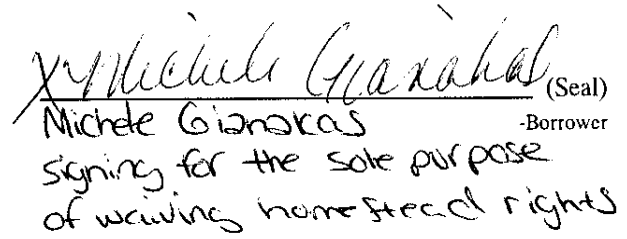 X Michele Gianakas (Seal)
Michele Gianakas -Borrower
signing for the sole purpose
of waiving homestead rights